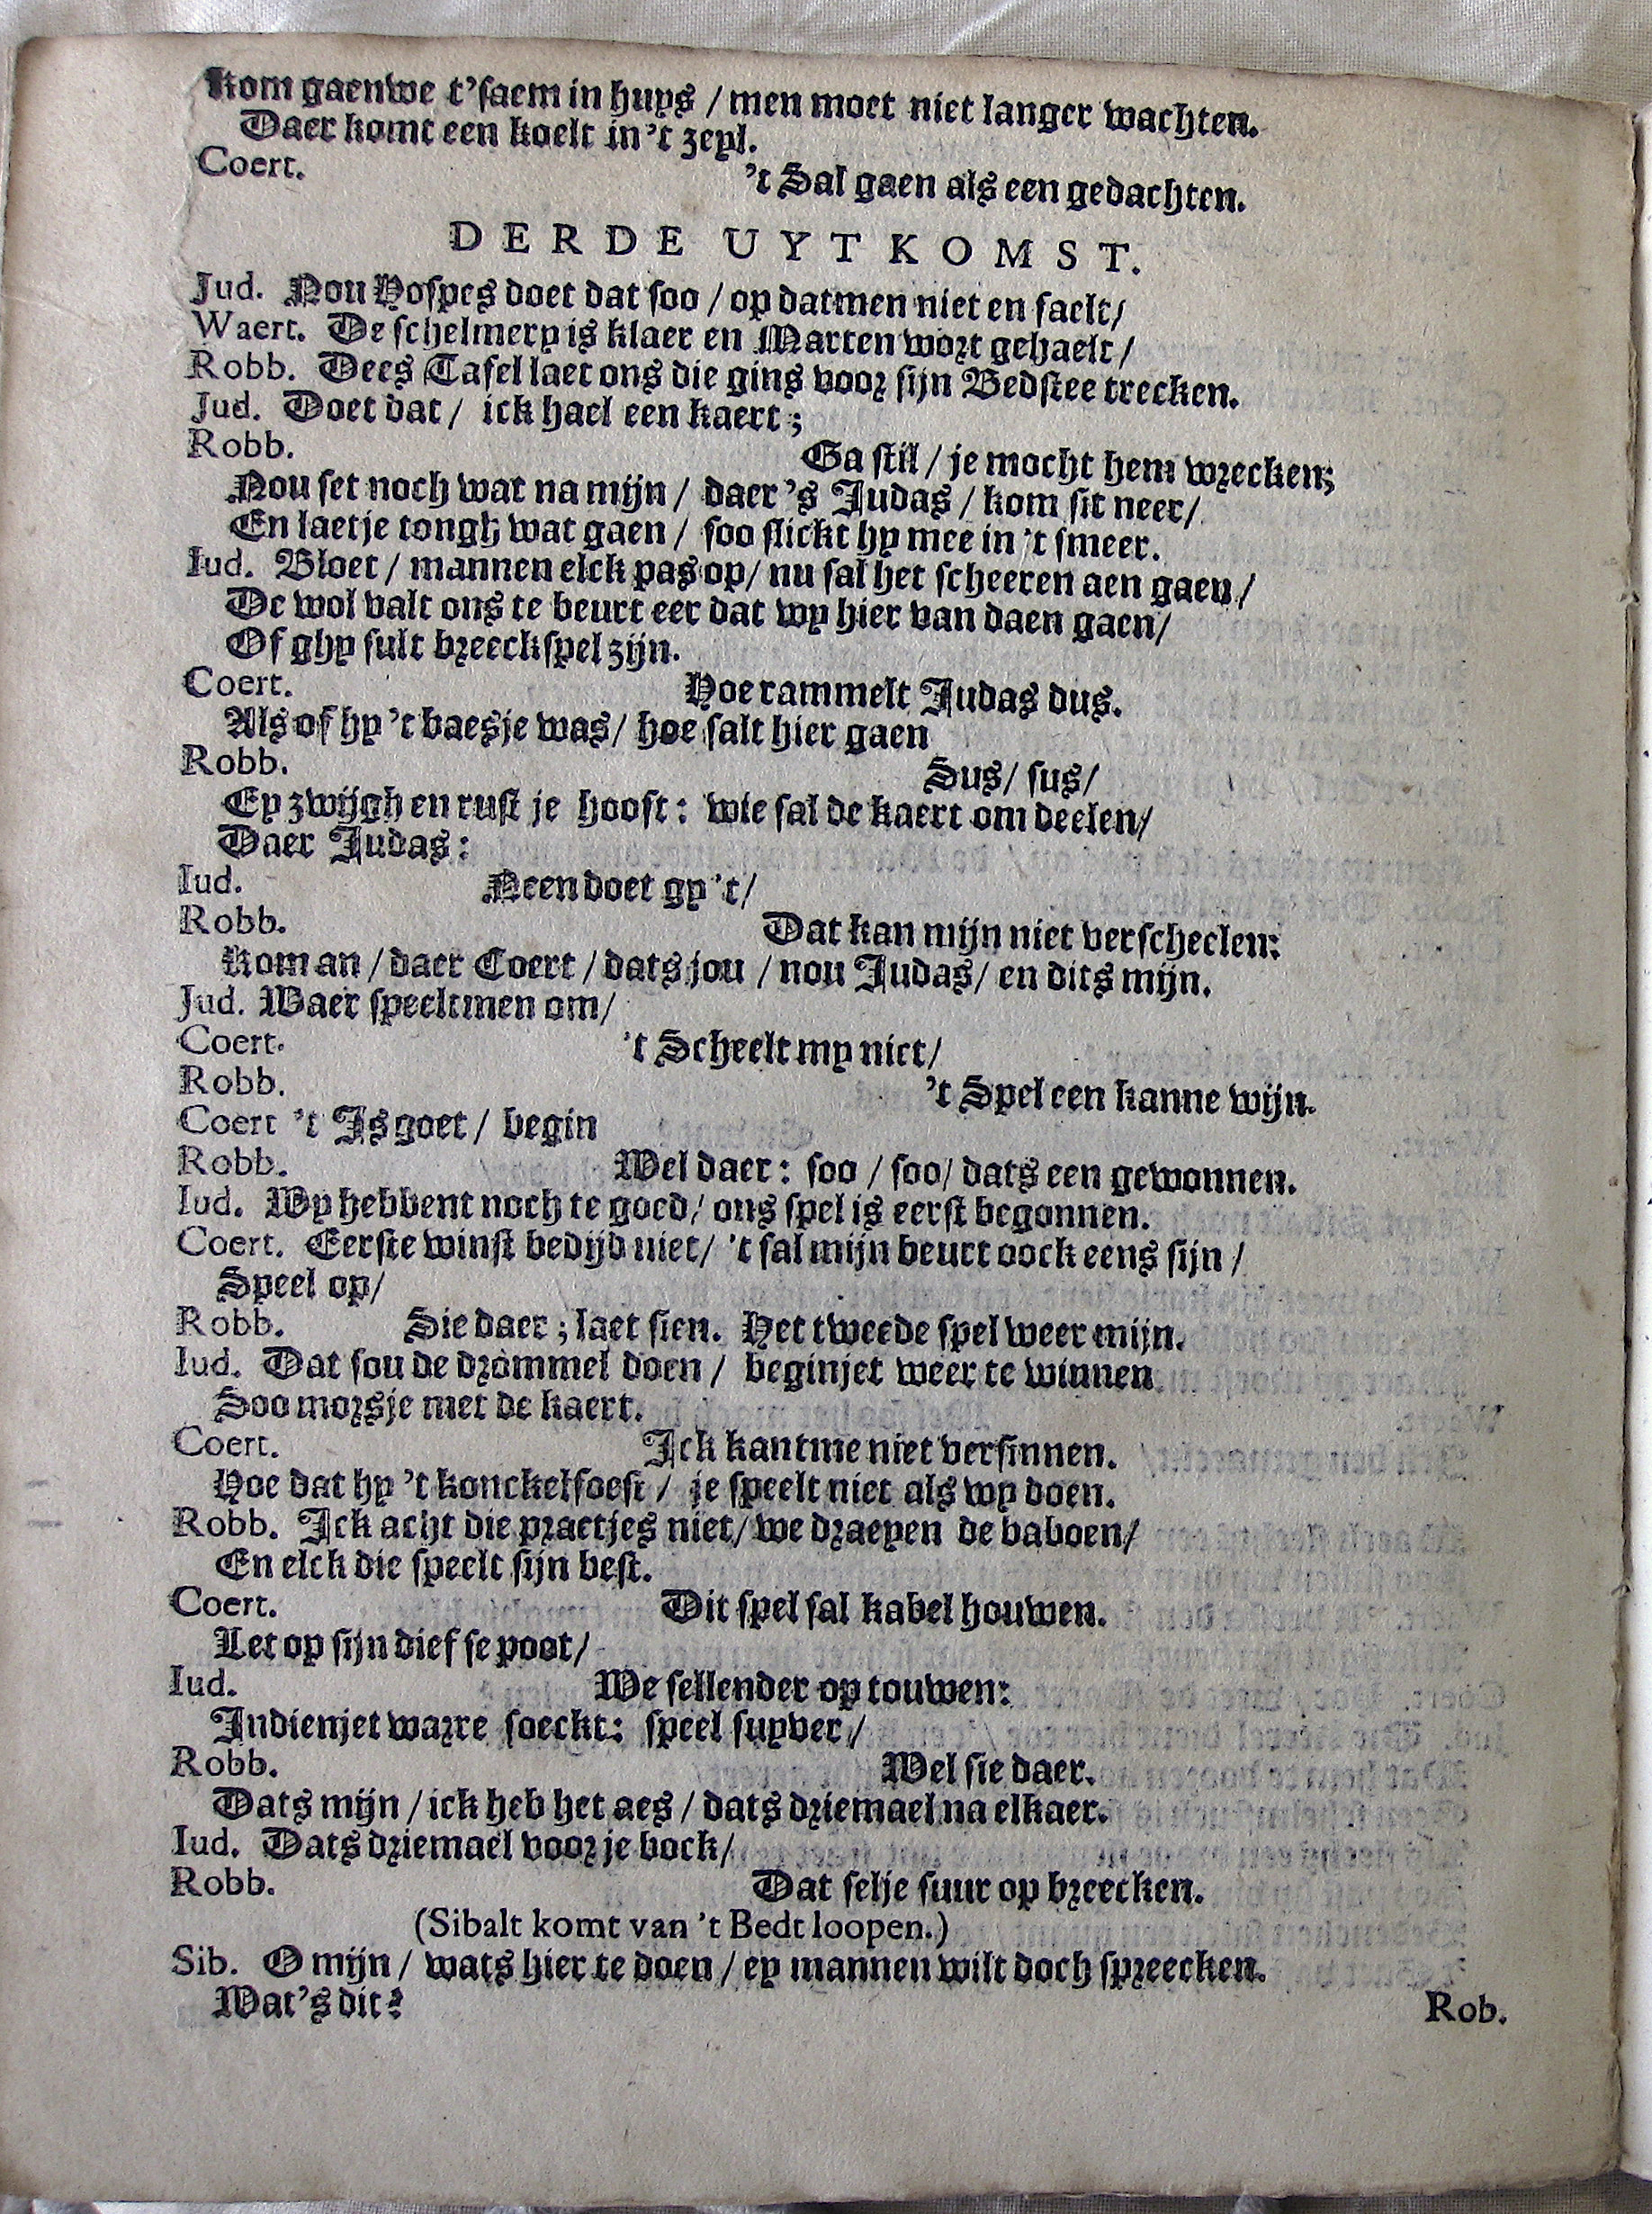 Kom gaenwe t'saem in huys / men moet niet langer wachten.
Daer komt een koelt in 't zeyl.
Coert. 't Sal gaen als een gedachten.
DERDE UYTKOMST.
Jud. Nou Hospes doet dat soo / op datmen niet en faelt /
Waert. De schelmery is klaer en Marten wort gehaelt /
Robb. Dees Tafel laet ons die gins voor sijn Bedstee trecken.
Jud. Doet dat / ick hael een kaert ;
Robb. Ga stil / je mocht hem wrecken;
Nou set noch wat na mijn / daer 's Judas / kom sit neer /
En laetje tongh wat gaen / soo slickt hy mee in 't smeer.
Iud. Bloet / mannen elck pas op / nu sal het scheeren aen gaen /
De wol valt ons te beurt eer dat wy hier van daen gaen /
Of ghy sult breeckspel zijn.
Coert. Hoe rammelt Judas dus.
Als of hy 't baesje was / hoe salt hier gaen
Robb. Sus / sus /
Ey zwijgh en rust je hooft : wie sal de kaert om deelen /
Daer Judas :
Iud. Neen doet gy 't /
Robb. Dat kan mijn niet verscheelen:
Kom an / daer Coert / dats jou / nou Judas / en dits mijn.
Jud. Waer speeltmen om /
Coert. 't Scheelt my niet /
Robb. 't Spel een kanne wijn.
Coert 't Is goet / begin
Robb. Wel daer : soo / soo / dats een gewonnen.
Iud. Wy hebbent noch te goed / ons spel is eerst begonnen.
Coert. Eerste winst bedijd niet / 't sal mijn beurt oock eens sijn /
Speel op /
Robb. Sie daer ; laet sien. Het tweede spel weer mijn.
Iud. Dat sou de drommel doen / beginjet weer te winnen
Soo morsje met de kaert.
Coert. Ick kantme niet versinnen.
Hoe dat hy 't konckelfoest / je speelt niet als wy doen.
Robb. Ick acht die praetjes niet / we draeyen de baboen /
En elck die speelt sijn best.
Coert. Dit spel sal kabel houwen.
Let op sijn dief se poot /
Iud. We sellender op touwen:
Indienjet warre soeckt : speel suyver /
Robb. Wel sie daer.
Dats mijn / ick heb het aes / dats driemael na elkaer.
Iud. Dats driemael voor je bock /
Robb. Dat selje suur op breecken.
(Sibalt komt van 't Bedt loopen.)
Sib. O mijn / wats hier te doen / ey mannen wilt doch spreecken.
Wat's dit?
Rob.